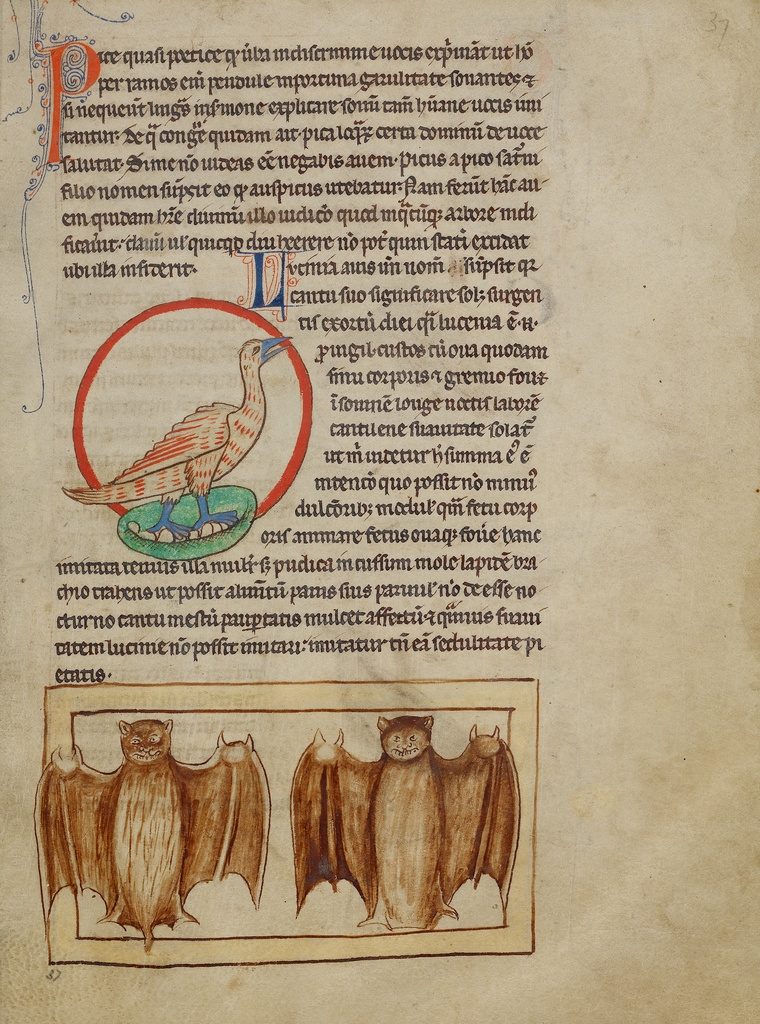 Pice quasi poetice qͥ uͥba in discrimine uocis exp̾mãt ut hõ
per ramos eniͫ pendule inportuna garulitate sonantes ⁊
si nequeũt linguã in sͥmone explicare sonũ tam̃ hũane uocis imi
tantur. De qͣ congͥe quidam ait. pica loq̾x certa dominũ de uoce
salutat. Si me nõ uideas eẽ negabis auem. Picus a pico satͥni
filio nomen sũpsit eo qͥ auspiciis utebatur. Nam ferũt hãc au
em quidam hr̃e diuinũ illo iudicõ quod in qͣcũq̾ arbore nidi
ficauͥit. clauũ ul̾ quicqͥd diu herere nõ potͥ quin statĩ excidat
ubi illa insiderit.
Lucinia auis inͫ nom̃ sũpsit qͥ
cantu suo significare sol; surgen
tis exortũ diei qͣi lucenia ẽ. H.
p̱uigil custos cũ oua quodam
sinu corporis ⁊ gremio fouͥ
ĩsomnẽ longe noctis laborẽ
cantilene suauitate solatͥ
ut mͥ uidetur hͨ summa eͥ ẽ
intencõ quo possit nõ minuͥ
dulcorib; modul̾ qͣm fetu corp
oris animare fetus ouaq̾ foue hanc
imitata tenuis illa mulͥ s; pudica in cussum mole lapitẽ bra
chio trahens ut possit alimͫtũ panis suis paruul̾ nõ de esse no
cturno cantu mestũ paup̱tatis mulcet affectũ ⁊ qͣmuis suaui
tatem lucinie nõ possit imitari. imitatur tñ eã sedulitate pi
etatis.
37
37